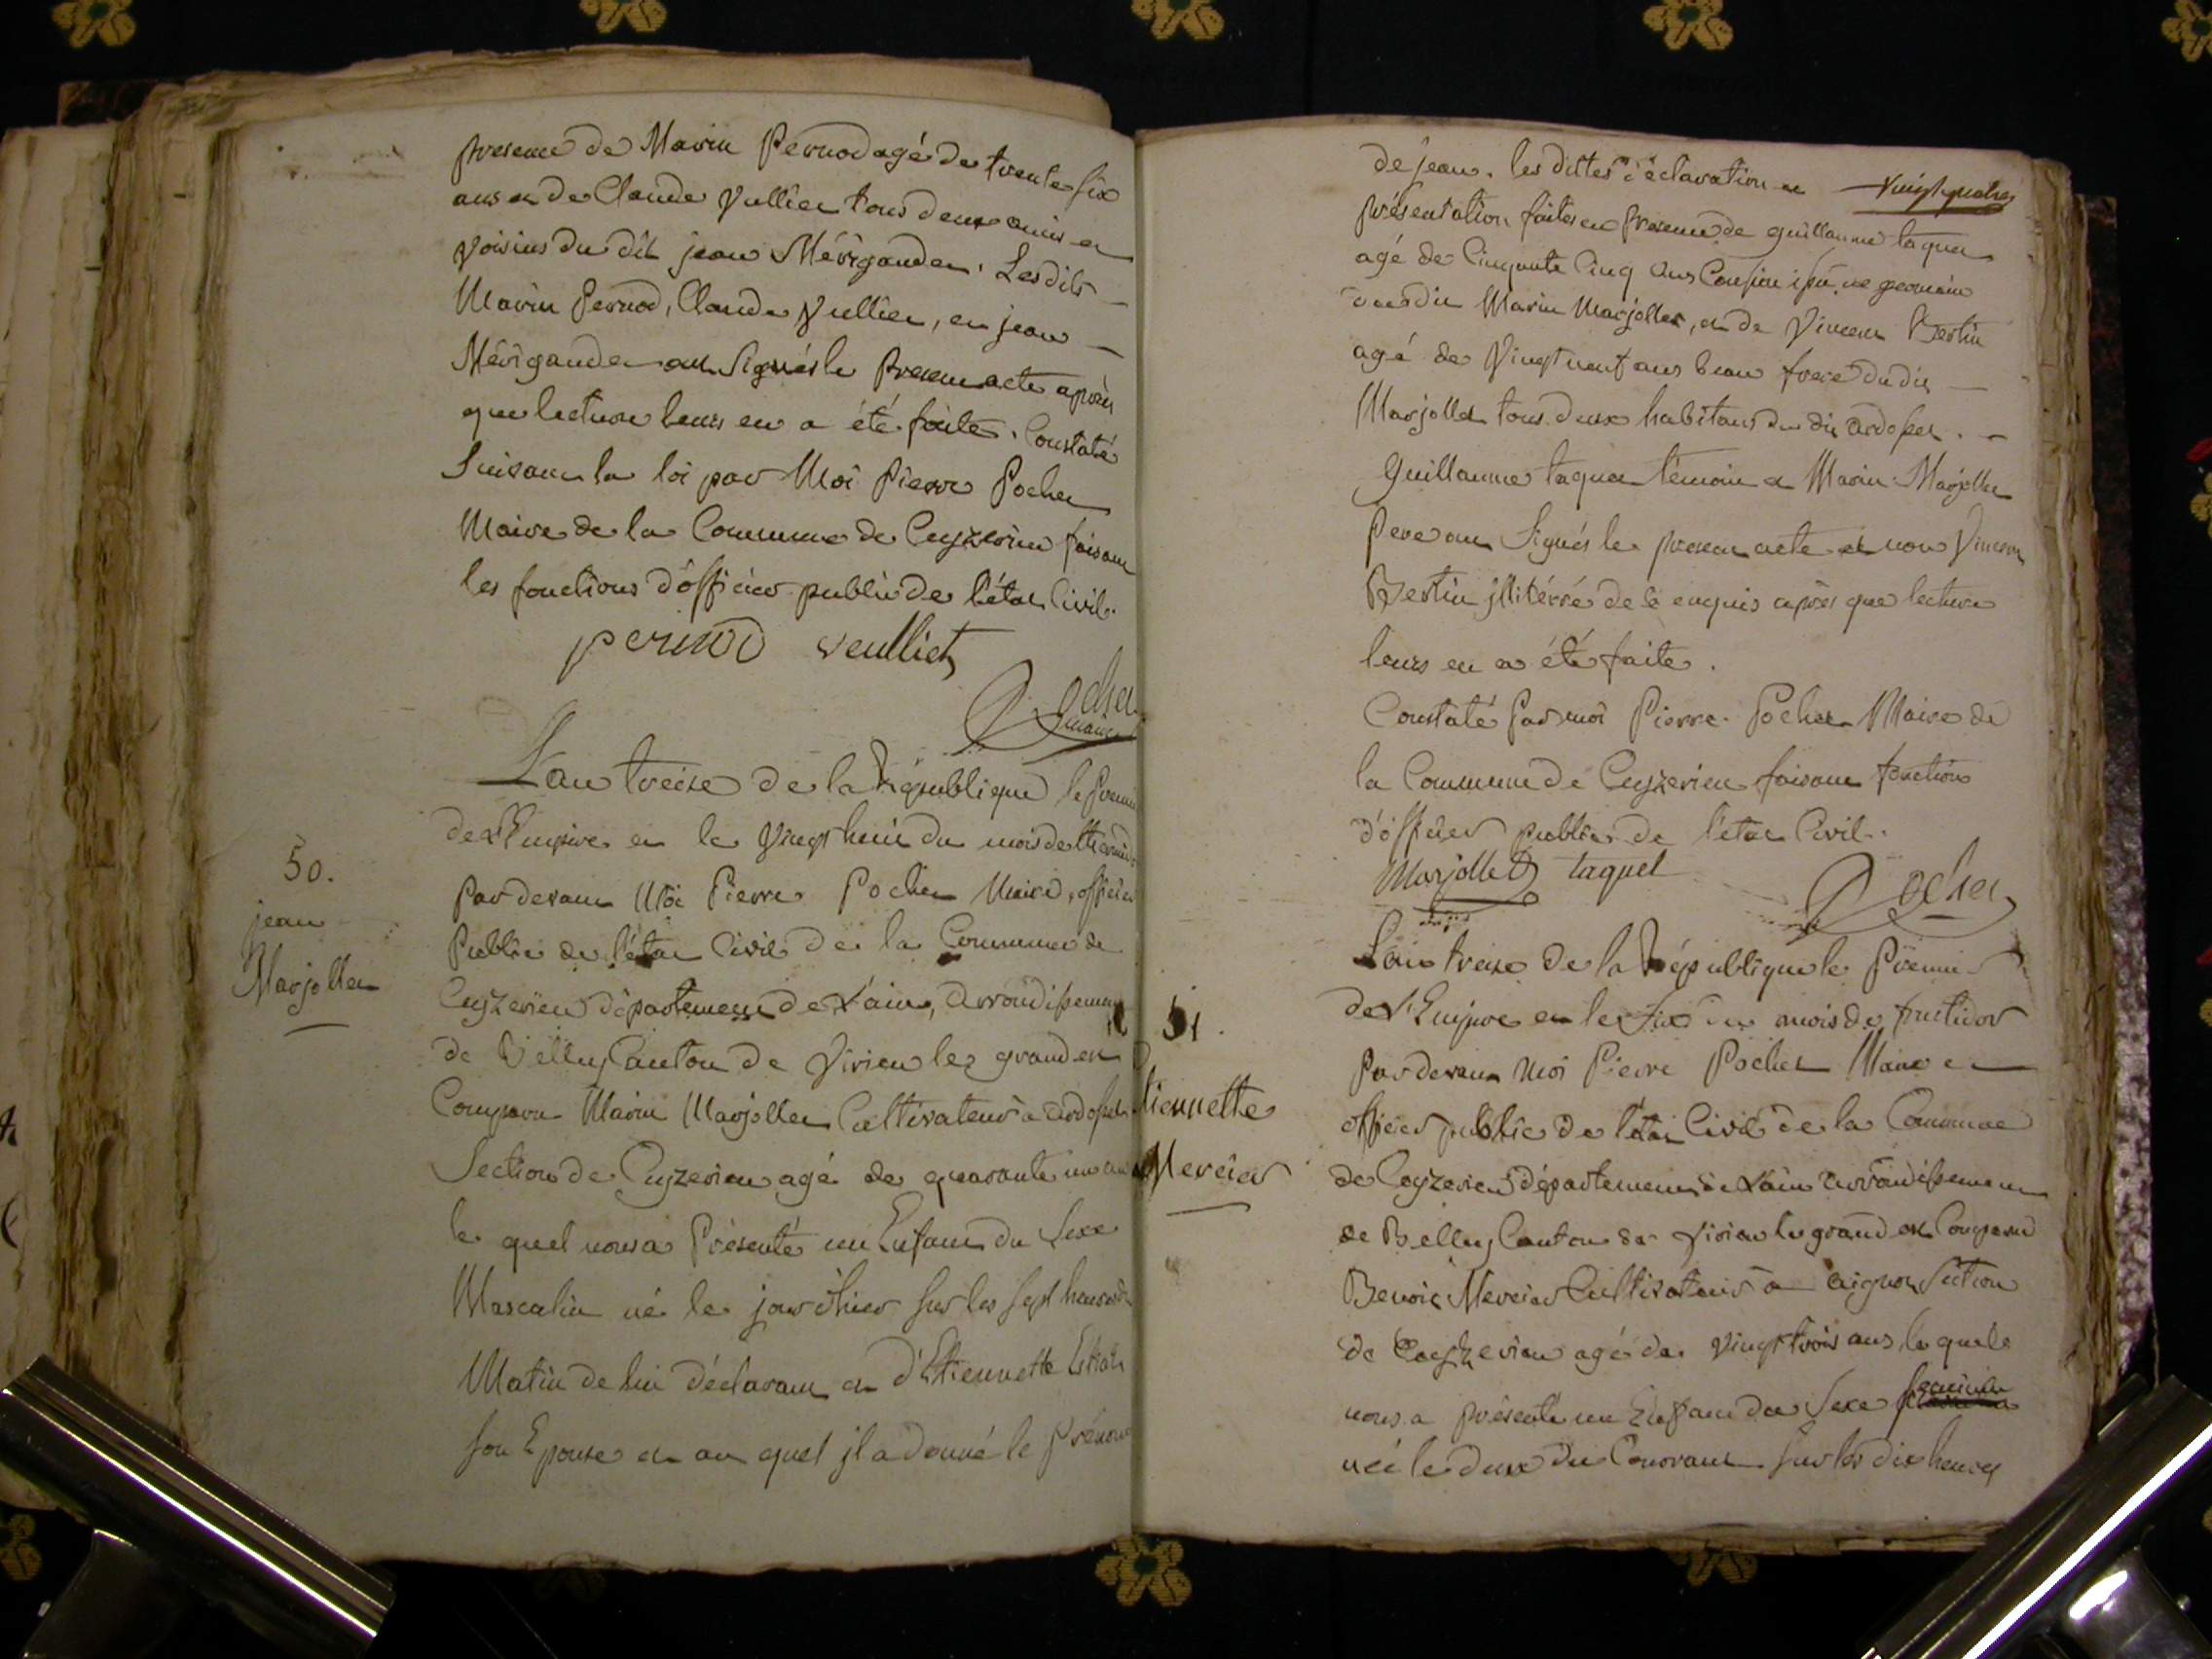 presence de Marin Pernod agé de trente six
ans et de Claude Vullier tous deux amis et
voisins du dit jean Mérigander. Lesdits
Marin Pernod, Claude Vullier, et jean
Mérigander ont signés le present acte après
que lecture leurs en a été faite. Constaté
suivant la loi par Moi Pierre Pochet
Maire de la Commune de Ceyzerieu faisant
les fonctions d'officier public de l'état Civil.
pernod veulliet
Pochet
maire
50.
jean
Marjollet
L'an treize de la République le premier
de l'Empire et le vingt huit du mois de thermidor
Pardevant Moi Pierre Pochet Maire, officier
Public de l'état Civil de la Commune de
Ceyzerieu département de l'ain, arrondissement
de Belley Canton de Virieu le grand est
Comparu Marin Marjollet Cultivateur a ardosset
Section de Ceyzerieu agé de quarante un ans
le quel nous a Présenté un Enfant du Sexe
Masculin né le jour d'hier sur les sept heures du
Matin de lui déclarant et d'Etiennette
son Epouse et au quel jl a donné le prénom
vingt quatre
de jean. les dittes déclaration et
présentation faites en presence de guillaume taquet
agé de Cinquante Cinq ans Cousin germain
du dit Marin Marjollet, et de Vincent Bertin
agé de Vingt neuf ans beau frere du dit
Marjollet tous deux habitans du dit ardosset.
Guillaume taquet témoin et Marin Marjollet
Pere ont Signés le present acte et non Vincent
Bertin jllitérré de ce enquis après que lecture
leurs en a été faite.
Constaté Par moi Pierre Pochet Maire de
la Commune de Ceyzerieu faisant fonction
d'officier public de l'état Civil.
Marjollet taquet
Pochet
51.
Etiennette
Mercier
L'an treize de la République le Premier
de l'Empire et le six du mois de fructidor
Pardevant Moi Pierre Pochet Maire et
officier public de l'état Civil de la Commune
de Ceyzerieu département de l'ain arrondissement
de Belley Canton de Virieu le grand est Comparu
Benoit Mercier Cultivateur a aignoz Section
de Ceyzerieu agé de Vingt trois ans, le quel
nous a présenté un Enfant du Sexe feminin
née le deux du Courant sur les dix heures